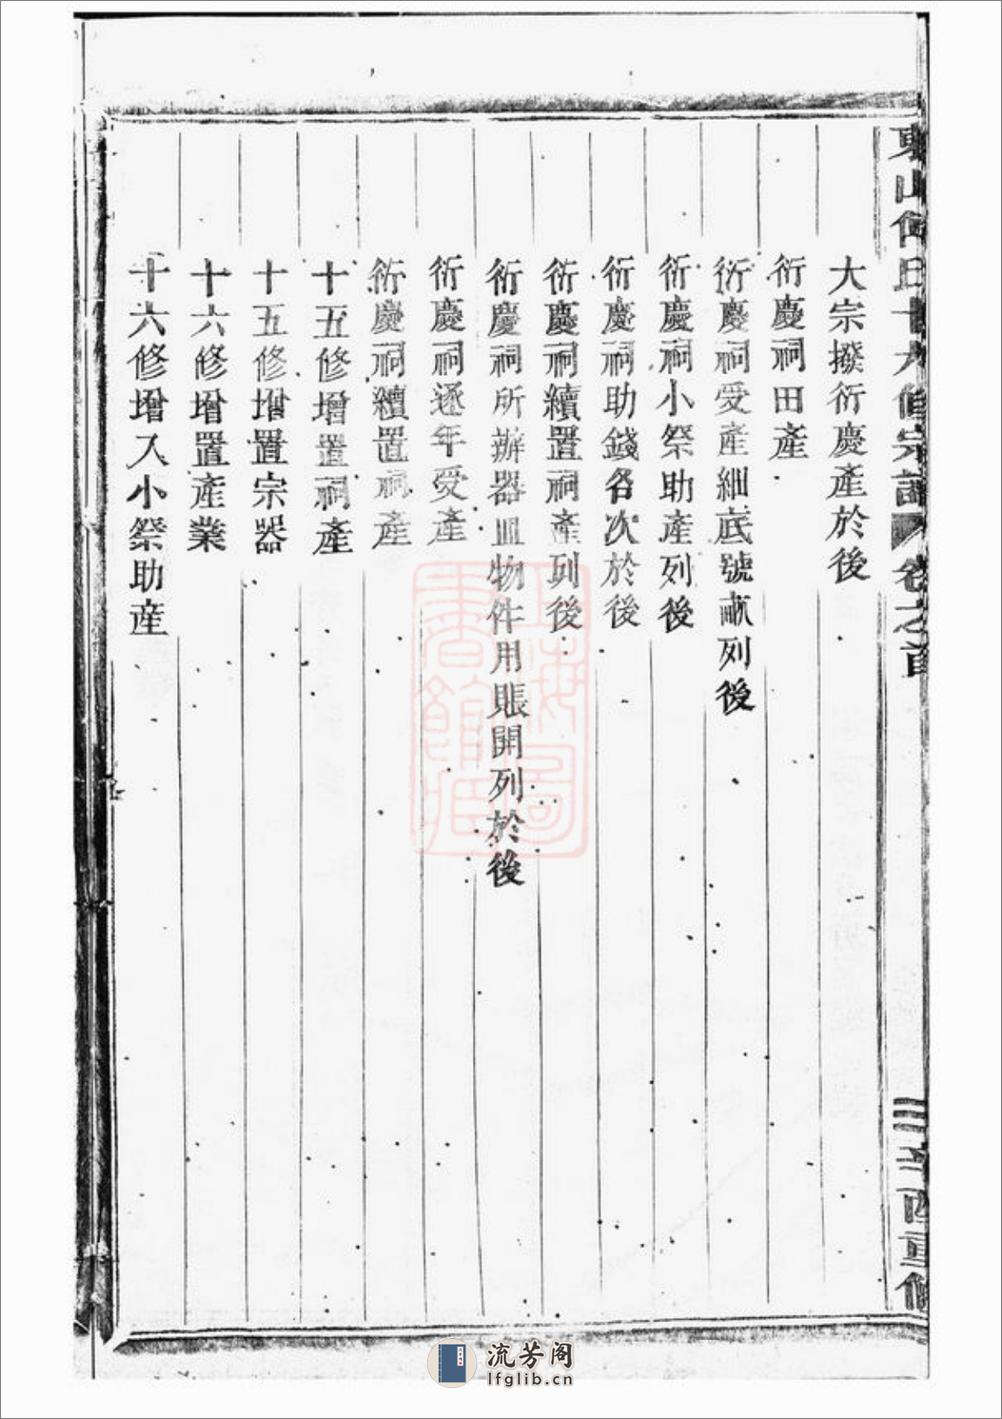 東山何氏十六修宗譜 卷之首
三 辛酉重修
大宗撥衍慶產於後
衍慶祠田產
衍慶祠受產細底號畝列後
衍慶祠小祭助產列後
衍慶祠助錢各次於後
衍慶祠續置祠產列後
衍慶祠所辦器皿物件用賬開列於後
衍慶祠逐年受產
衍慶祠續置祠產
十五修增置祠產
十五修增置宗器
十六修增置產業
十六修增入小祭助産
上海圖書館藏
流芳阁
lfglib.cn